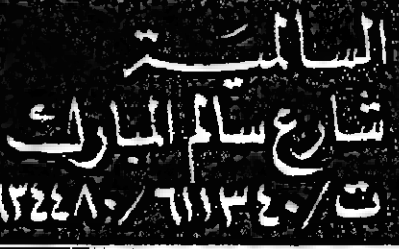 السالمية
شارع سالم المبارك
ت/٦١١٣٤٠/٦١٣٤٤٨٠